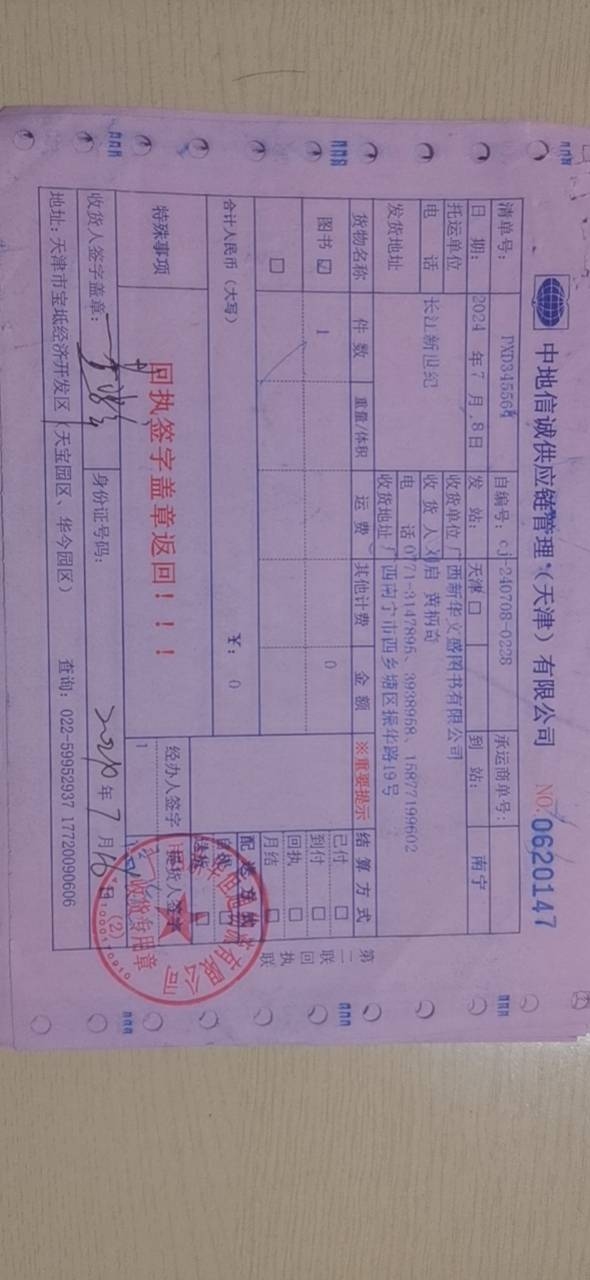 中地信诚供应链管理（天津）有限公司
NO: 0620147
清单号： PXD345564 自编号： cj-240708-0228 承运商单号：
日 期： 2024 年 7 月 8 日 发 站： 天津 □ 到 站： 南宁
托运单位 收货单位 广西新华文盛图书有限公司
电 话 长江新世纪 收 货 人 刘启 黄柄奇
电 话 0771-3147895、3938958、15877199602
发货地址 收货地址 广西南宁市西乡塘区振华路19号
货物名称 件 数 重量/体积 运 费 其他计费 金 额 ※重要提示 结 算 方 式
图书 ☑ 1 0 已付 □
到付 □
回执 □
□ 月结 □
合计人民币（大写） ￥： 0 配 送 方 式
特殊事项 回执签字盖章返回！！！ 经办人签字 提货人签字
1
收货人签字盖章： 身份证号码： 年 7 月 日
地址：天津市宝坻经济开发区（天宝园区、华今园区） 查询： 022-59952937 17720090606
第二联 回执联
收货专用章
(2)
有限公司